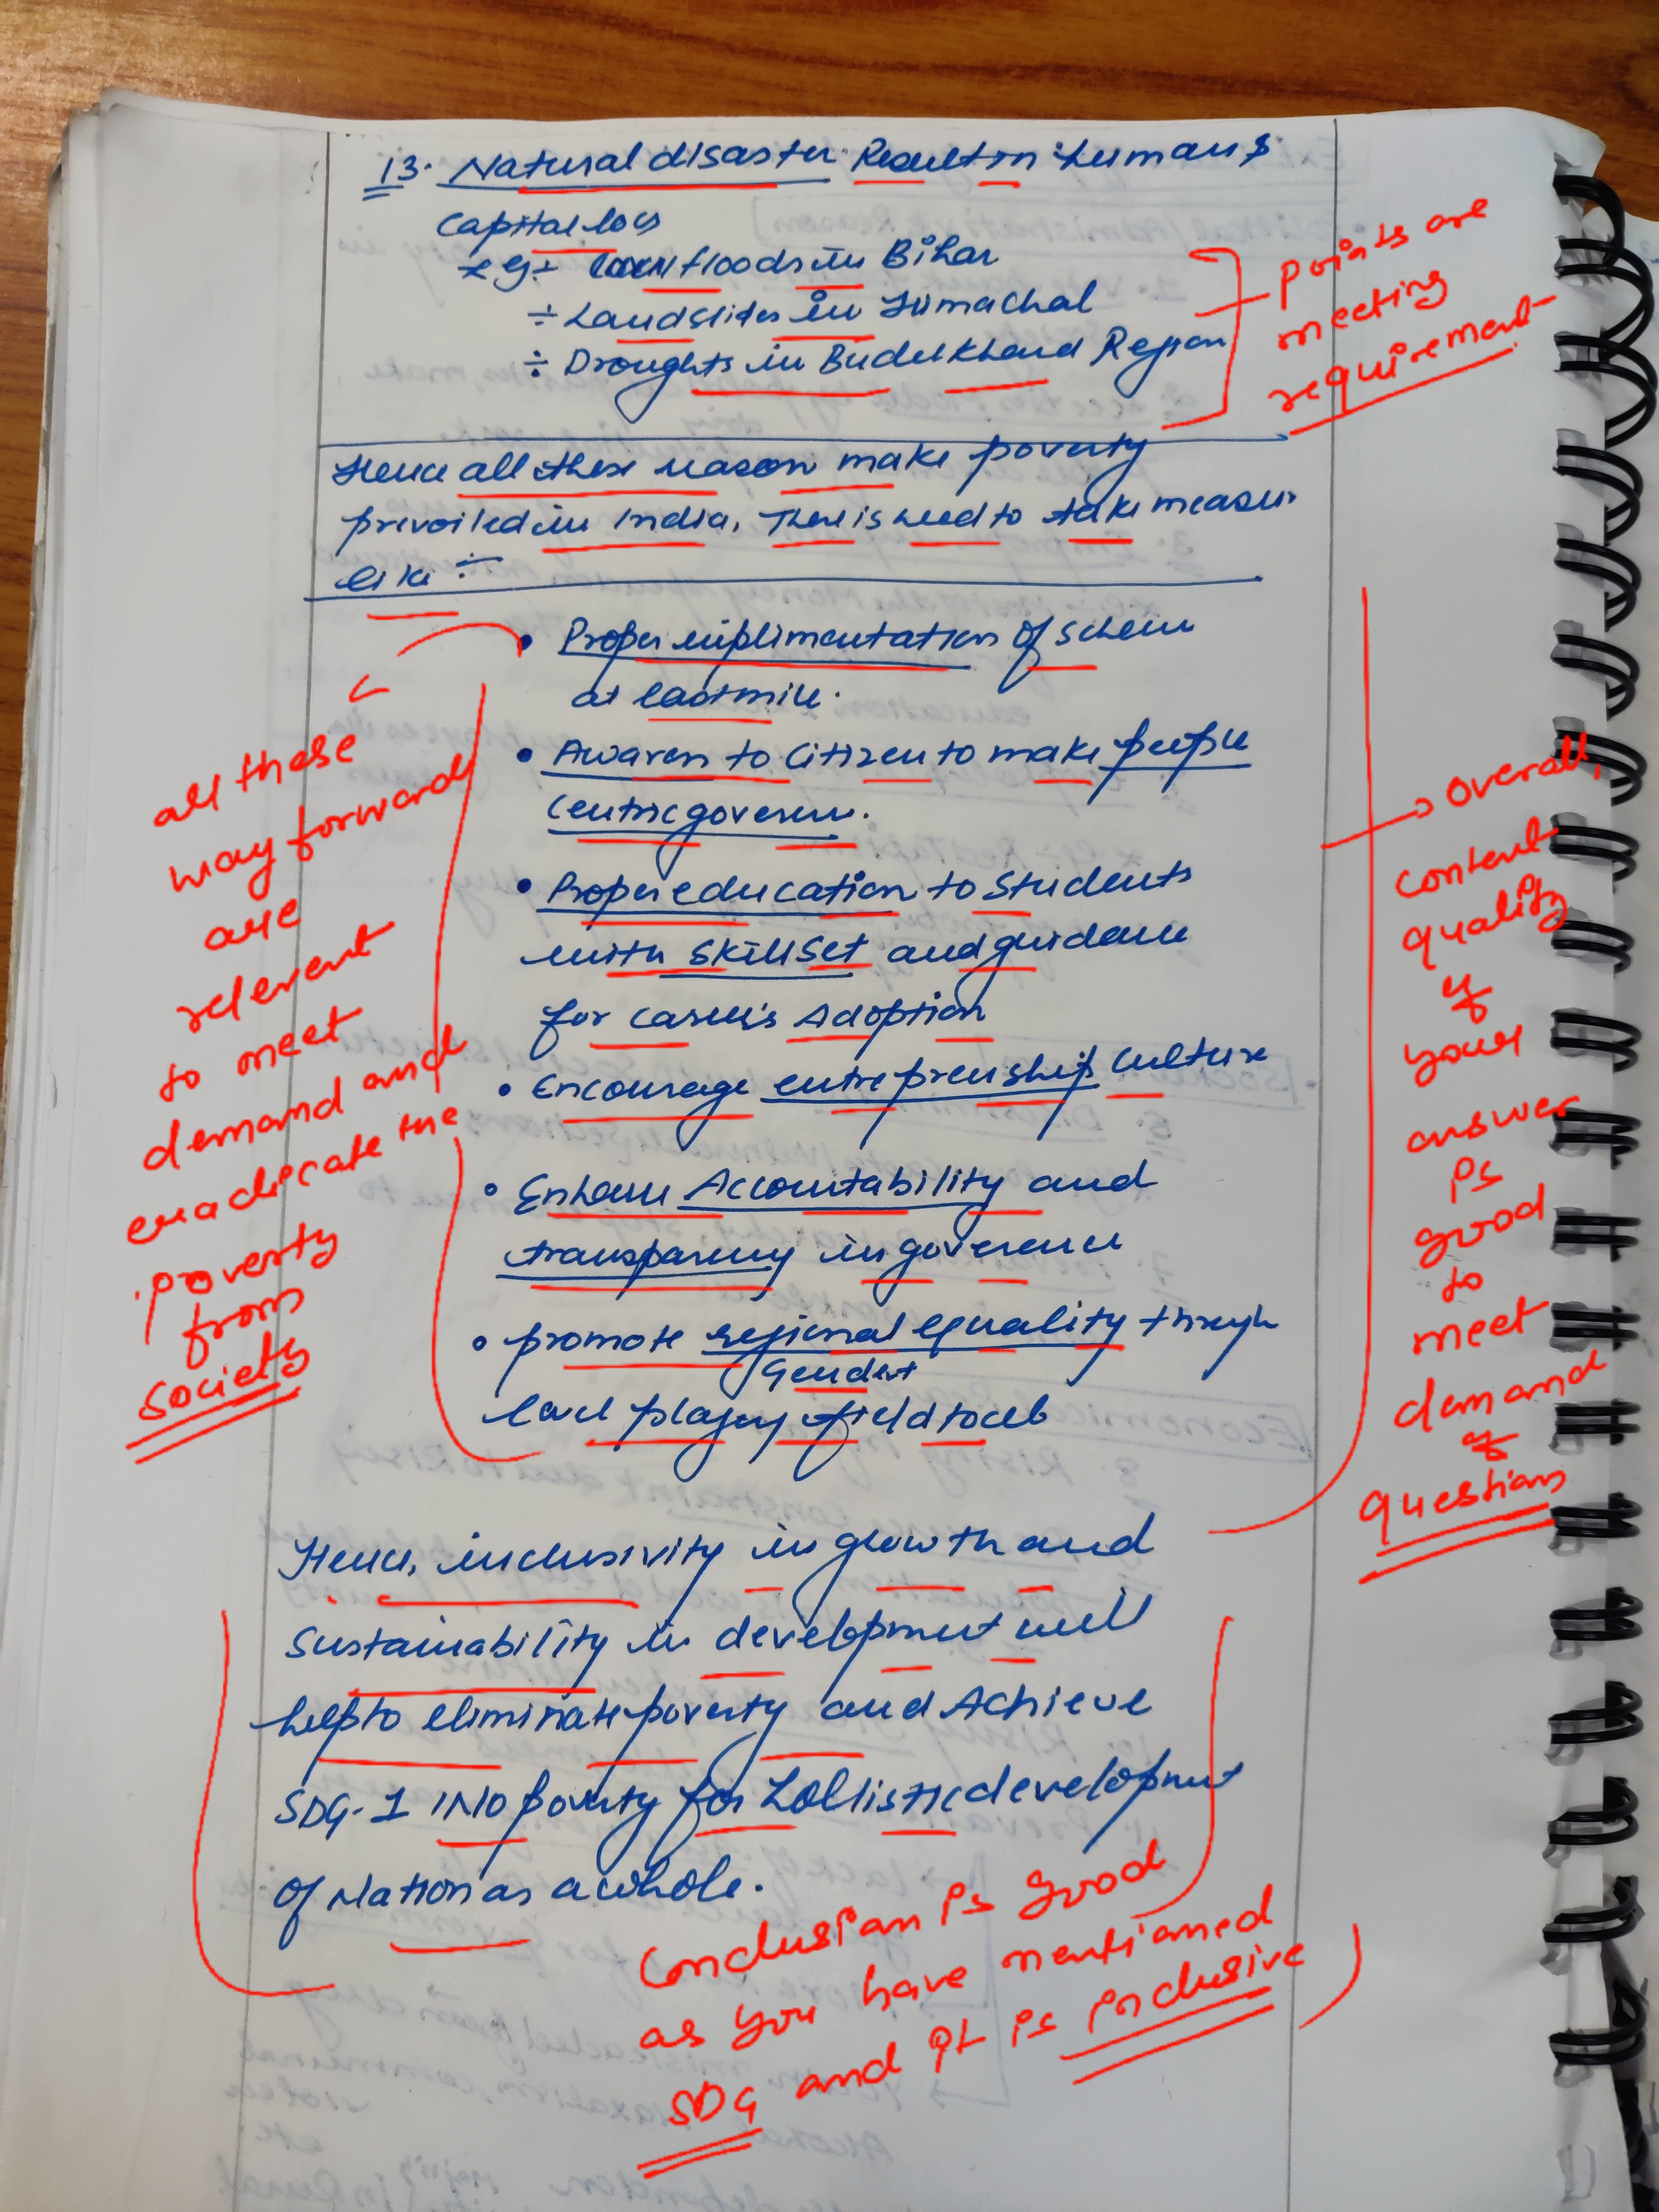 13. Natural disaster Result in human &
Capital loss
eg ÷ floods in Bihar
÷ Landslides in Himachal
÷ Droughts in Budelkhand Region
points are
meeting
requirement
Hence all these reason make poverty
prevoiled in India, There is need to take measur
like ÷
• Proper implimentation of schem
at lastmile.
• Awaren to Citizen to make people
Centric govern.
• Proper education to Students
with skillset and guidance
for careers Adoption
• Encourage entreprenship culture
• Enhance Accountability and
transparency in goverence
• promote regional equality through
Gender
level playing field to all
all these
way forward
are
relevent
to meet
demand and
eradicate the
poverty
from
society
Overall,
content
quality
of
your
answer
is
good
to
meet
demand
of
questions
Hence, inclusivity in growth and
Sustainability in development will
help to eliminate poverty and Achieve
SDG-1 /No poverty for hollistic development
of Nation as a whole.
Conclusion is good
as you have mentioned
SDG and it is inclusive